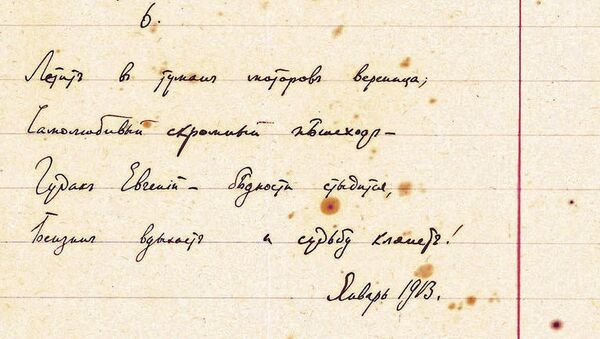 6.
Летитъ в туман моторовъ вереница;
Самолюбивый скромный пѣшеходъ—
Чудакъ Евгеній— бѣдности стыдится,
Бензинъ вдыхаетъ и судьбу клянетъ!
Январь 1913.